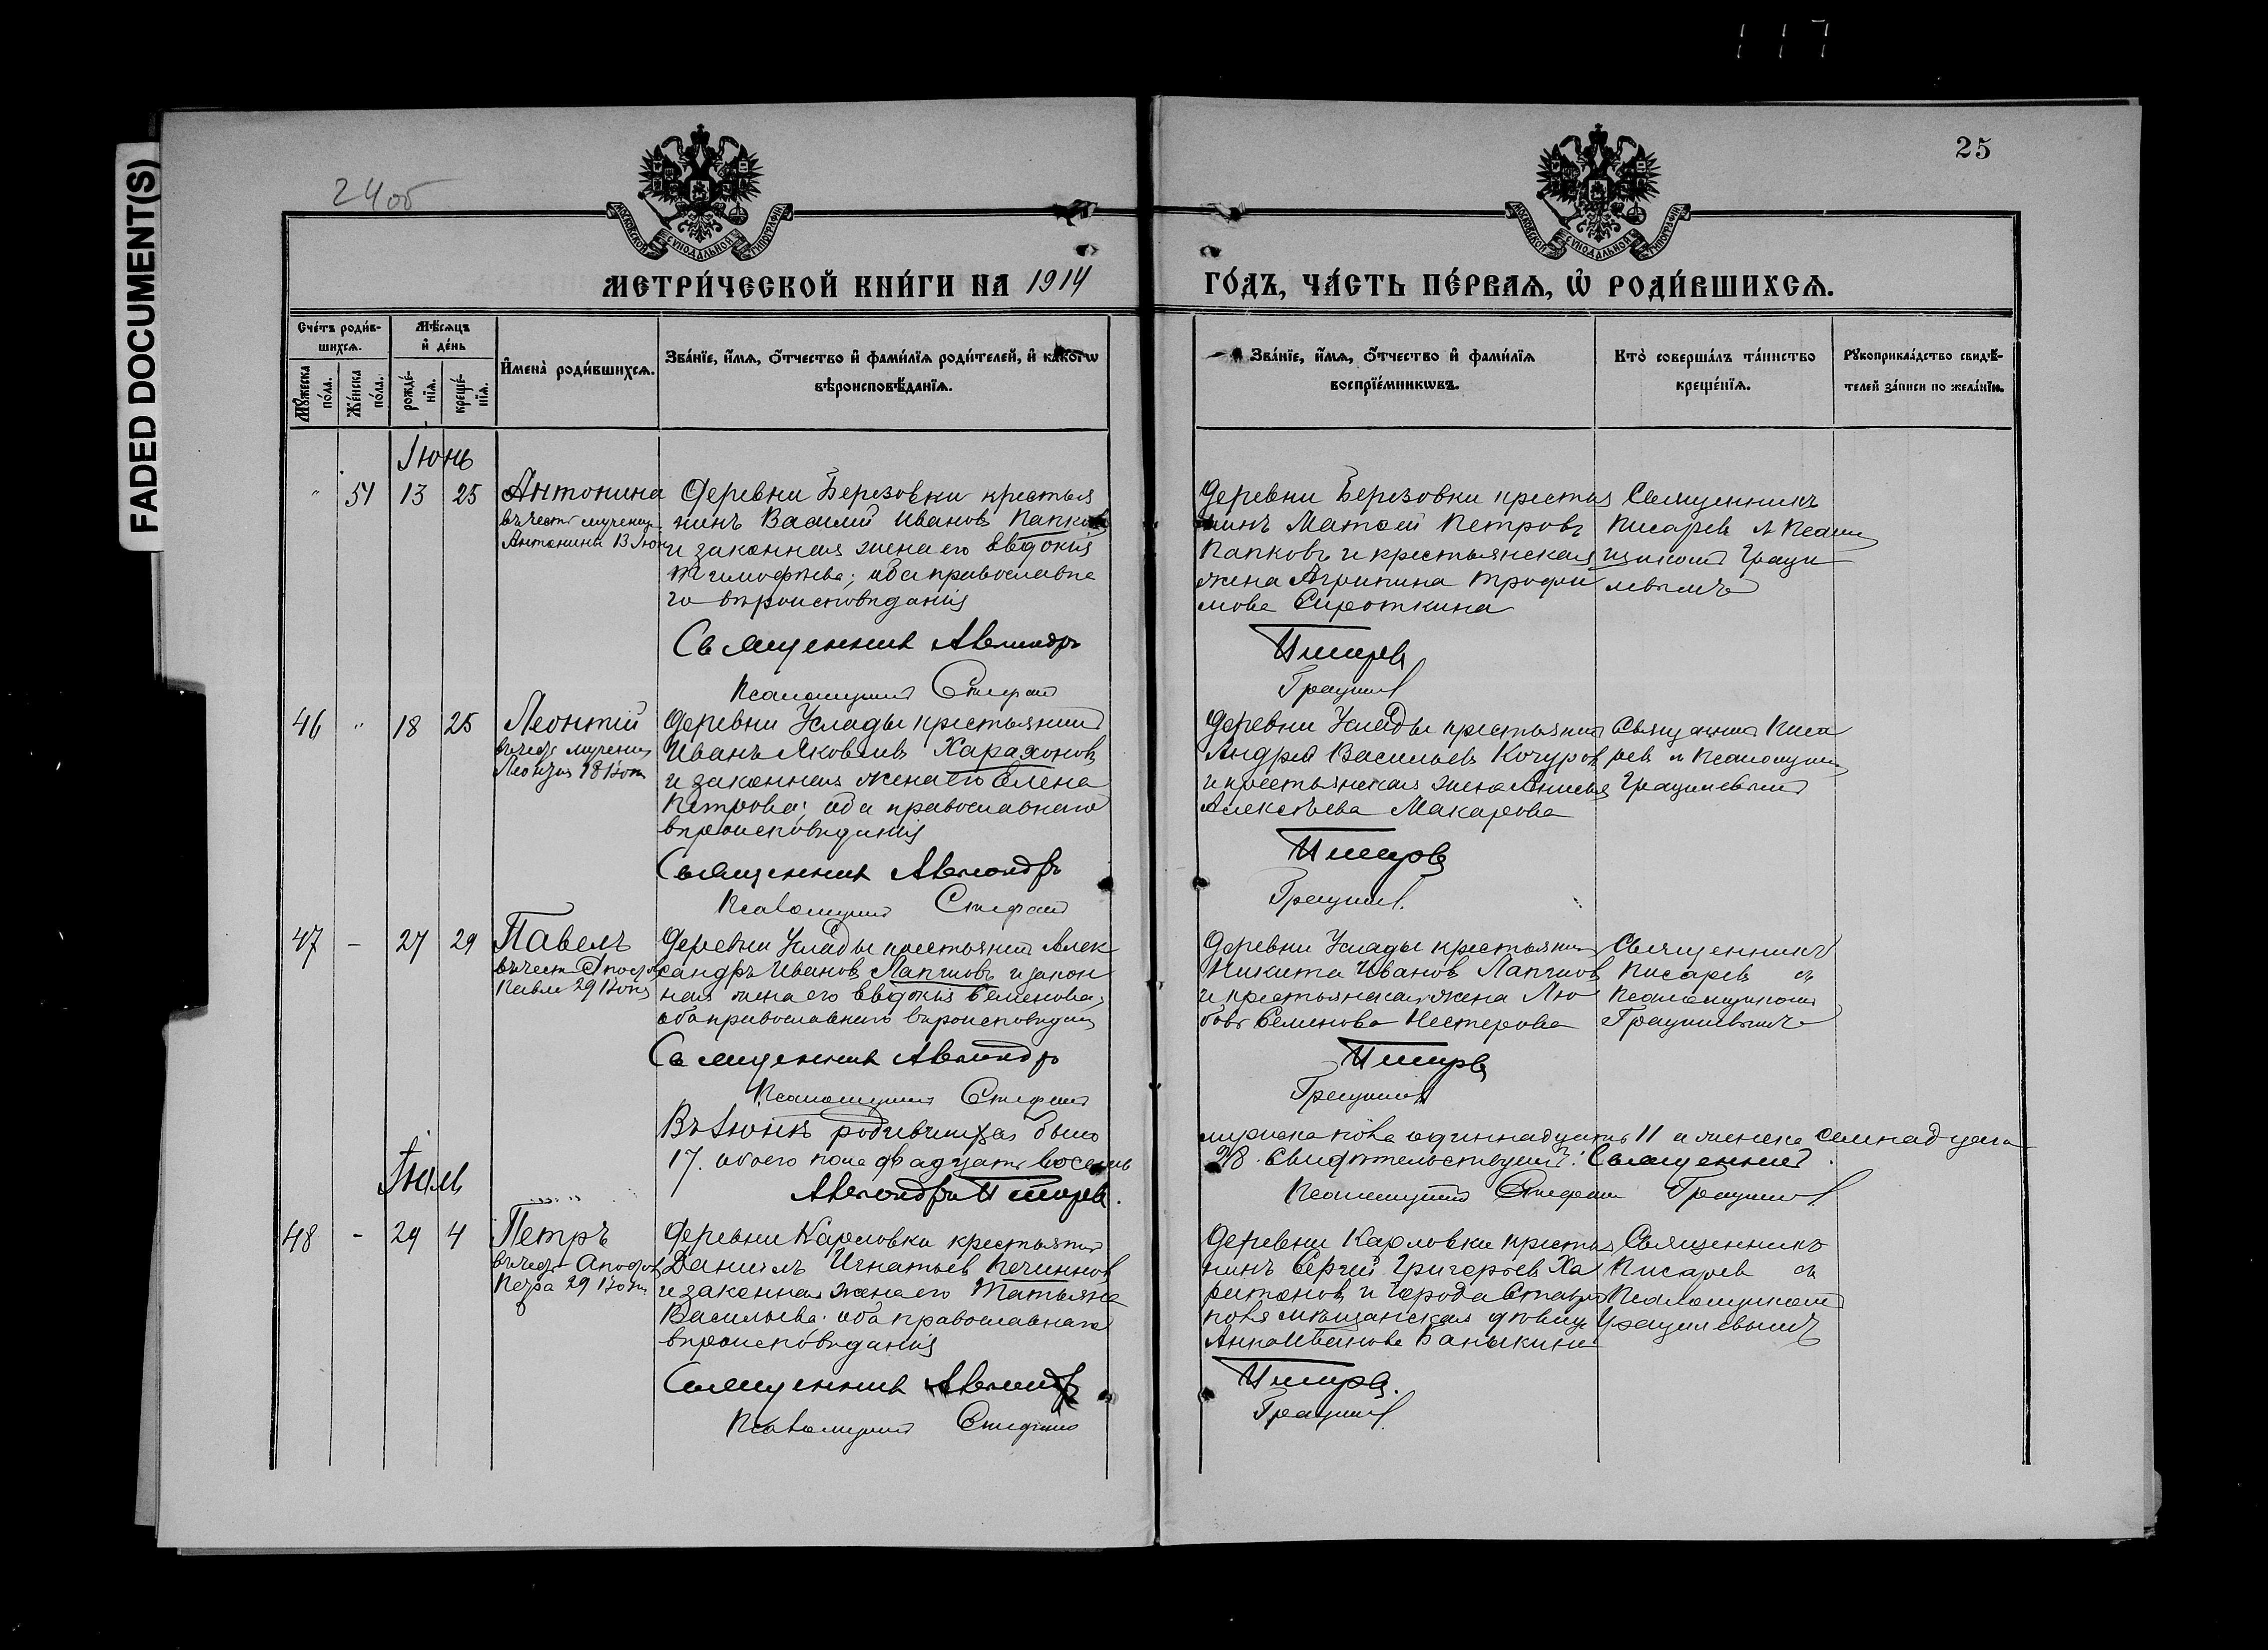 117
FADED DOCUMENT(S)
24 об
25
МОСКОВСКОЙ СѴНОДАЛЬНОЙ ТИПОГРАФИИ
МОСКОВСКОЙ СѴНОДАЛЬНОЙ ТИПОГРАФИИ
МЕТРИ́ЧЕСКОЙ КНИ́ГИ НА 1914
ГО́ДЪ, ЧА́СТЬ ПЕ́РВАѦ, Ѡ҆ РОДИ́ВШИХСѦ.
Сче́тъ роди́в-
шихсѧ.
Мꙋ́жеска по́ла.
Же́нска по́ла.
Мѣ́сѧцъ
и҆ де́нь
рожде́-
нїѧ.
креще́-
нїѧ.
И҆мена̀ роди́вшихсѧ.
Зва́нїе, и҆́мѧ, ѻ҆́тчество и҆ фами́лїѧ роди́телей, и҆ како́гѡ
вѣроисповѣ́данїѧ.
Зва́нїе, и҆́мѧ, ѻ҆́тчество и҆ фами́лїѧ
воспрїе́мникѡвъ.
Кто̀ соверша́лъ та́инство
креще́нїѧ.
Рꙋкоприкла́дство свидѣ́-
телей за́писи по жела́нїю.
Іюнь
" 51 13 25
Антонина
въ честь мучениц
Антонины 13 Іюн
Деревни Березовки крестья
нинъ Василій Иванов Папков
и законная жена его Евдокія
Тимофѣева; оба православна
го вѣроисповѣданія
Священник Александръ
Псаломщикъ Стефан
Деревни Березовки крестья
нинъ Матвей Петровъ
Папковъ и крестьянская
жена Агрипина Трофи
мова Сироткина
Писарев
Грацилев
Священникъ
Писарев и Псалом
щиком Граци
левымъ
46 " 18 25
Леонтій
въ честь мученик
Леонтія 18 Іюня
Деревни Услады крестьянин
Иванъ Яковлев Харахонов
и законная жена его Елена
Петрова; оба православнаго
вѣроисповѣданія
Священник Александръ
Псаломщикъ Стефан
Деревни Услады крестьянин
Андрей Васильев Кочуров
и крестьянская жена Анисья
Алексѣева Макарова
Писарев
Грацилев
Священник Писа
рев и Псаломщик
Грацилевым
47 - 27 29
Павелъ
въ честь Апостола
Павла 29 Іюня
Деревни Услады крестьянин Алек
сандръ Иванов Лапшовъ и закон
ная жена его Евдокія Семенова;
оба православнаго вѣроисповѣдан
Священник Александр
Псаломщикъ Стефан
Деревни Услады крестьянин
Никита Иванов Лапшов
и крестьянская жена Лю
бовь Семенова Нестерова
Писарев
Грацилев
Священникъ
Писарев съ
Псаломщиком
Грацилевым
Въ Іюнѣ родившихся было
мужеска пола одиннадцать 11 и женска семнадцать
17. обоего пола двадцать восемь
28. Свидѣтельствуют: Священник
Александръ Писарев.
Псаломщикъ Стефан Грацилев.
Іюль
48 - 29 4
Петръ
въ честь Апостола
Петра 29 Іюня
Деревни Карловки крестьянин
Данилъ Игнатьев Печинков
и законная жена его Татьяна
Васильева; оба православнаго
вѣроисповѣданія
Священник Александр
Псаломщикъ Стефан
Деревни Карловки крестья
нинъ Сергей Григорьев Ха
ритонов и города Ставро
поля мѣщанская дѣвица
Анна Иванова Баныкина
Писарев.
Грацилев.
Священникъ
Писарев съ
Псаломщиком
Грацилевымъ